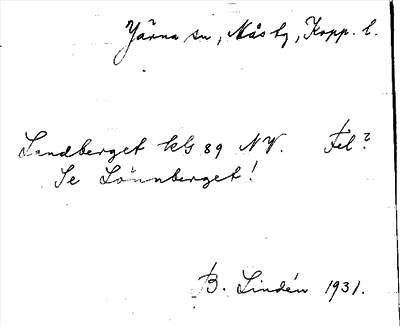 Järna sn, Nås bg, Kopp. l.
Landberget kbl 89 NV. Fel?
Se Lönnberget!
B. Lindén 1931.